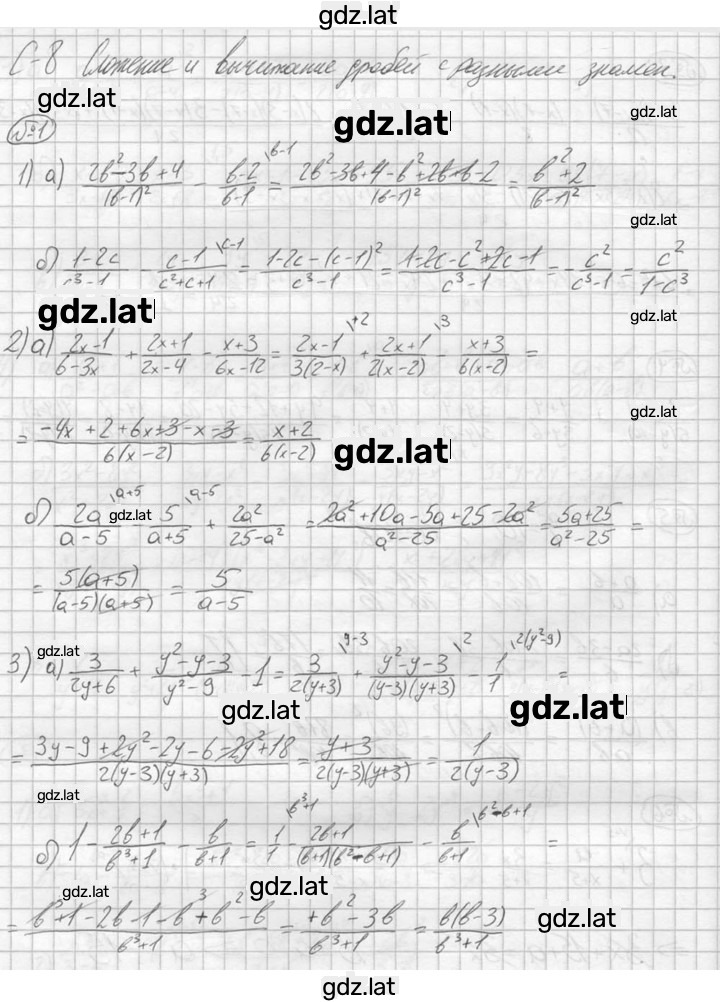 gdz.lat
С-8 Сложение и вычитание дробей с разными знамен.
gdz.lat gdz.lat
№1 gdz.lat
1) а) (2в²-3в+4)/(в-1)² - (в-2)/(в-1) \в-1 = (2в²-3в+4-в²+2в+в-2)/(в-1)² = (в²+2)/(в-1)²
gdz.lat
б) (1-2c)/(c³-1) - (c-1)/(c²+c+1) \c-1 = (1-2c-(c-1)²)/(c³-1) = (1-2c-c²+2c-1)/(c³-1) = -c²/(c³-1) = c²/(1-c³)
gdz.lat gdz.lat
2) а) (2x-1)/(6-3x) + (2x+1)/(2x-4) - (x+3)/(6x-12) = (2x-1)/(3(2-x)) \+2 + (2x+1)/(2(x-2)) \3 - (x+3)/(6(x-2)) =
gdz.lat
= (-4x+2+6x+3-x-3)/(6(x-2)) = (x+2)/(6(x-2))
gdz.lat
б) 2a/(a-5) \a+5 gdz.lat 5/(a+5) \a-5 + 2a²/(25-a²) = (2a²+10a-5a+25-2a²)/(a²-25) = (5a+25)/(a²-25) =
= 5(a+5)/((a-5)(a+5)) = 5/(a-5)
gdz.lat
3) а) 3/(2y+6) + (y²-y-3)/(y²-9) - 1 = 3/(2(y+3)) \y-3 + (y²-y-3)/((y-3)(y+3)) \2 - 1/1 \2(y²-9) =
gdz.lat gdz.lat
= (3y-9+2y²-2y-6-2y²+18)/(2(y-3)(y+3)) = (y+3)/(2(y-3)(y+3)) = 1/(2(y-3))
gdz.lat
б) 1 - (2в+1)/(в³+1) - в/(в+1) = 1/1 \в³+1 - (2в+1)/((в+1)(в²-в+1)) - в/(в+1) \в²-в+1 =
gdz.lat gdz.lat
= (в³+1-2в-1-в³+в²-в)/(в³+1) = (+в²-3в)/(в³+1) = в(в-3)/(в³+1)
gdz.lat
gdz.lat